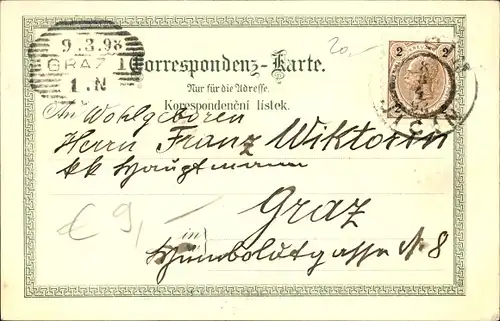 9.3.98
GRAZ 1
1.N
Correspondenz-Karte.
20,-
2 2
Nur für die Adresse.
Korespondenční lístek.
JIČIN
An Wohlgeboren
Herrn Franz Wiktorin
kk Hauptmann
€ 9,-
Graz
in
Humboldtgasse N. 8